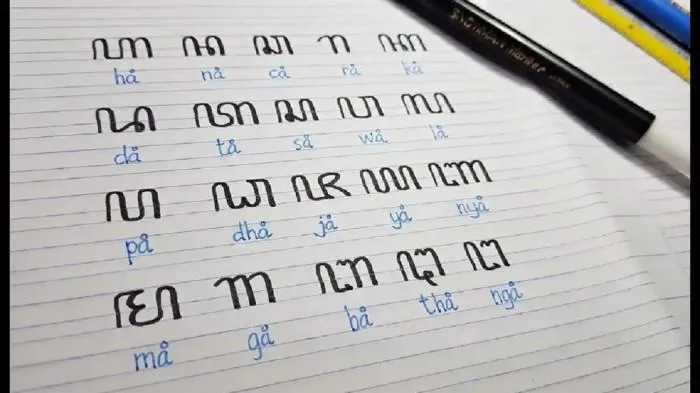 ꦲ ꦤ ꦕ ꦫ ꦏ
hå nå cå rå kå
ꦢ ꦠ ꦱ ꦮ ꦭ
då tå så wå lå
ꦥ ꦝ ꦗ ꦪ ꦚ
på dhå jå yå nyå
ꦩ ꦒ ꦧ ꦛ ꦔ
må gå bå thå ngå